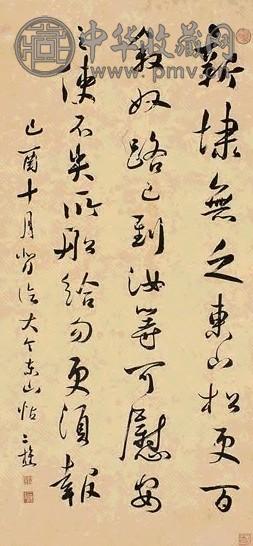 中华收藏网
www.pmv.cn
新埭無乏東山松更百
叙奴路已到汝等可慰安
之使不失所船給勿更須報
己酉十月背临大令东山帖